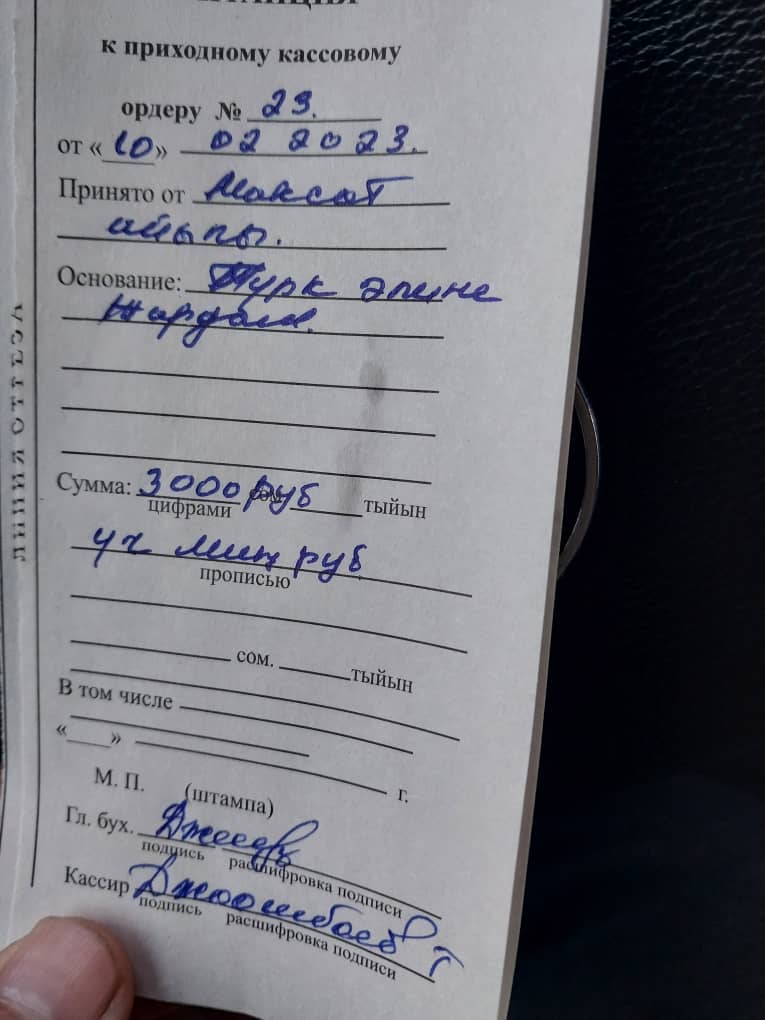 к приходному кассовому
ордеру № 29.
от «10» 02 2023.
Принято от Максат
айылы.
Основание: Түрк элине
жардам.
ЛИНИЯ ОТРЕЗА
Сумма: 3000 руб тыйын
цифрами
үч миң руб
прописью
сом. тыйын
В том числе
« » г.
М. П. (штампа)
Гл. бух.
подпись расшифровка подписи
Кассир Джоошбаев Т
подпись расшифровка подписи